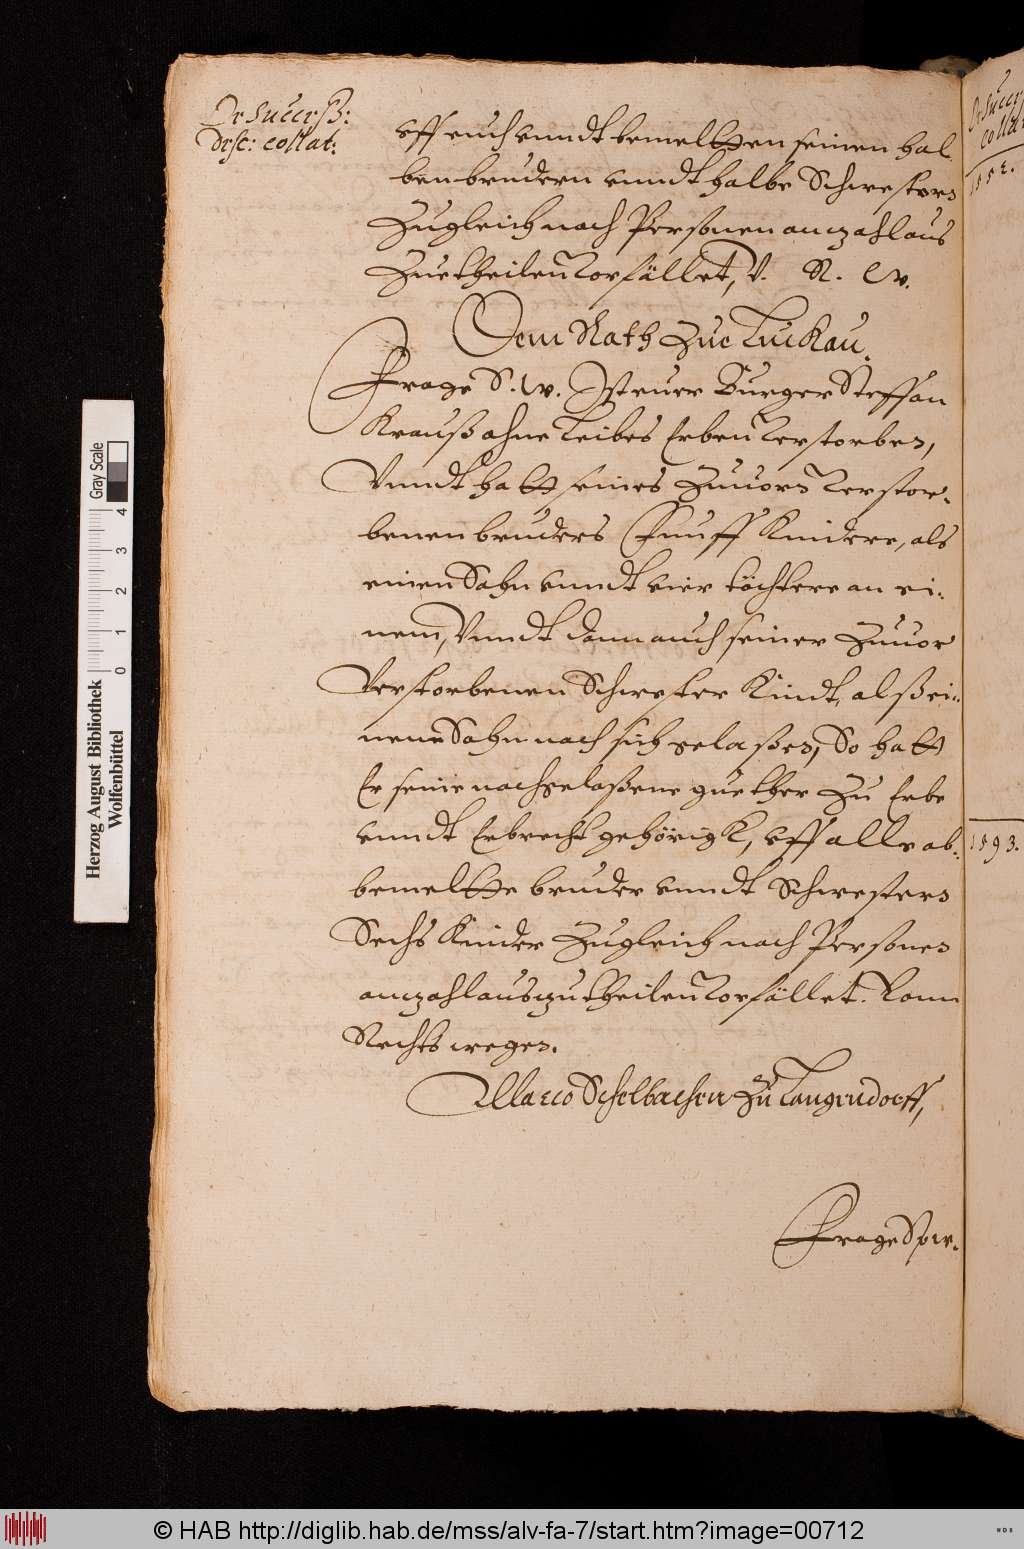 De Success:
desc: collat:
uff euch unndt bemeltten seinen hal
ben brudern unndt halbe Schwestern
Zugleich nach Personen anzahl aus
Zuetheilen Vorfället, V. R. W.
Dem Rath Zue Luckau.
Frage S. W. Ist euer Burger Steffan
Krauß ahne Leibes Erben Verstorben,
Unndt hatt seines Zuuorn Verstor-
benen bruders Funff Kindere, als
einen Sohn unndt vier töchtere an ei-
nem, Unndt dann auch seiner Zuuor
Verstorbenen Schwester Kindt, alß ei-
nenn Sohn nach sich gelaßen, So hatt
Er seine nachgelaßene guether Zu Erbe
unndt Erbrecht gehörigk, uff alle ob-
bemeltte bruder unndt Schwestern
Sechs Kinder Zugleich nach Personen
anzahl auszutheilen Vorfället. Vonn
Rechts wegen.
Marco Schelbachen Zu Langendorff,
Frage Spw.
De Succ
colla
1593.
Gray Scale
0 1 2 3 4
Herzog August Bibliothek
Wolfenbüttel
© HAB http://diglib.hab.de/mss/alv-fa-7/start.htm?image=00712